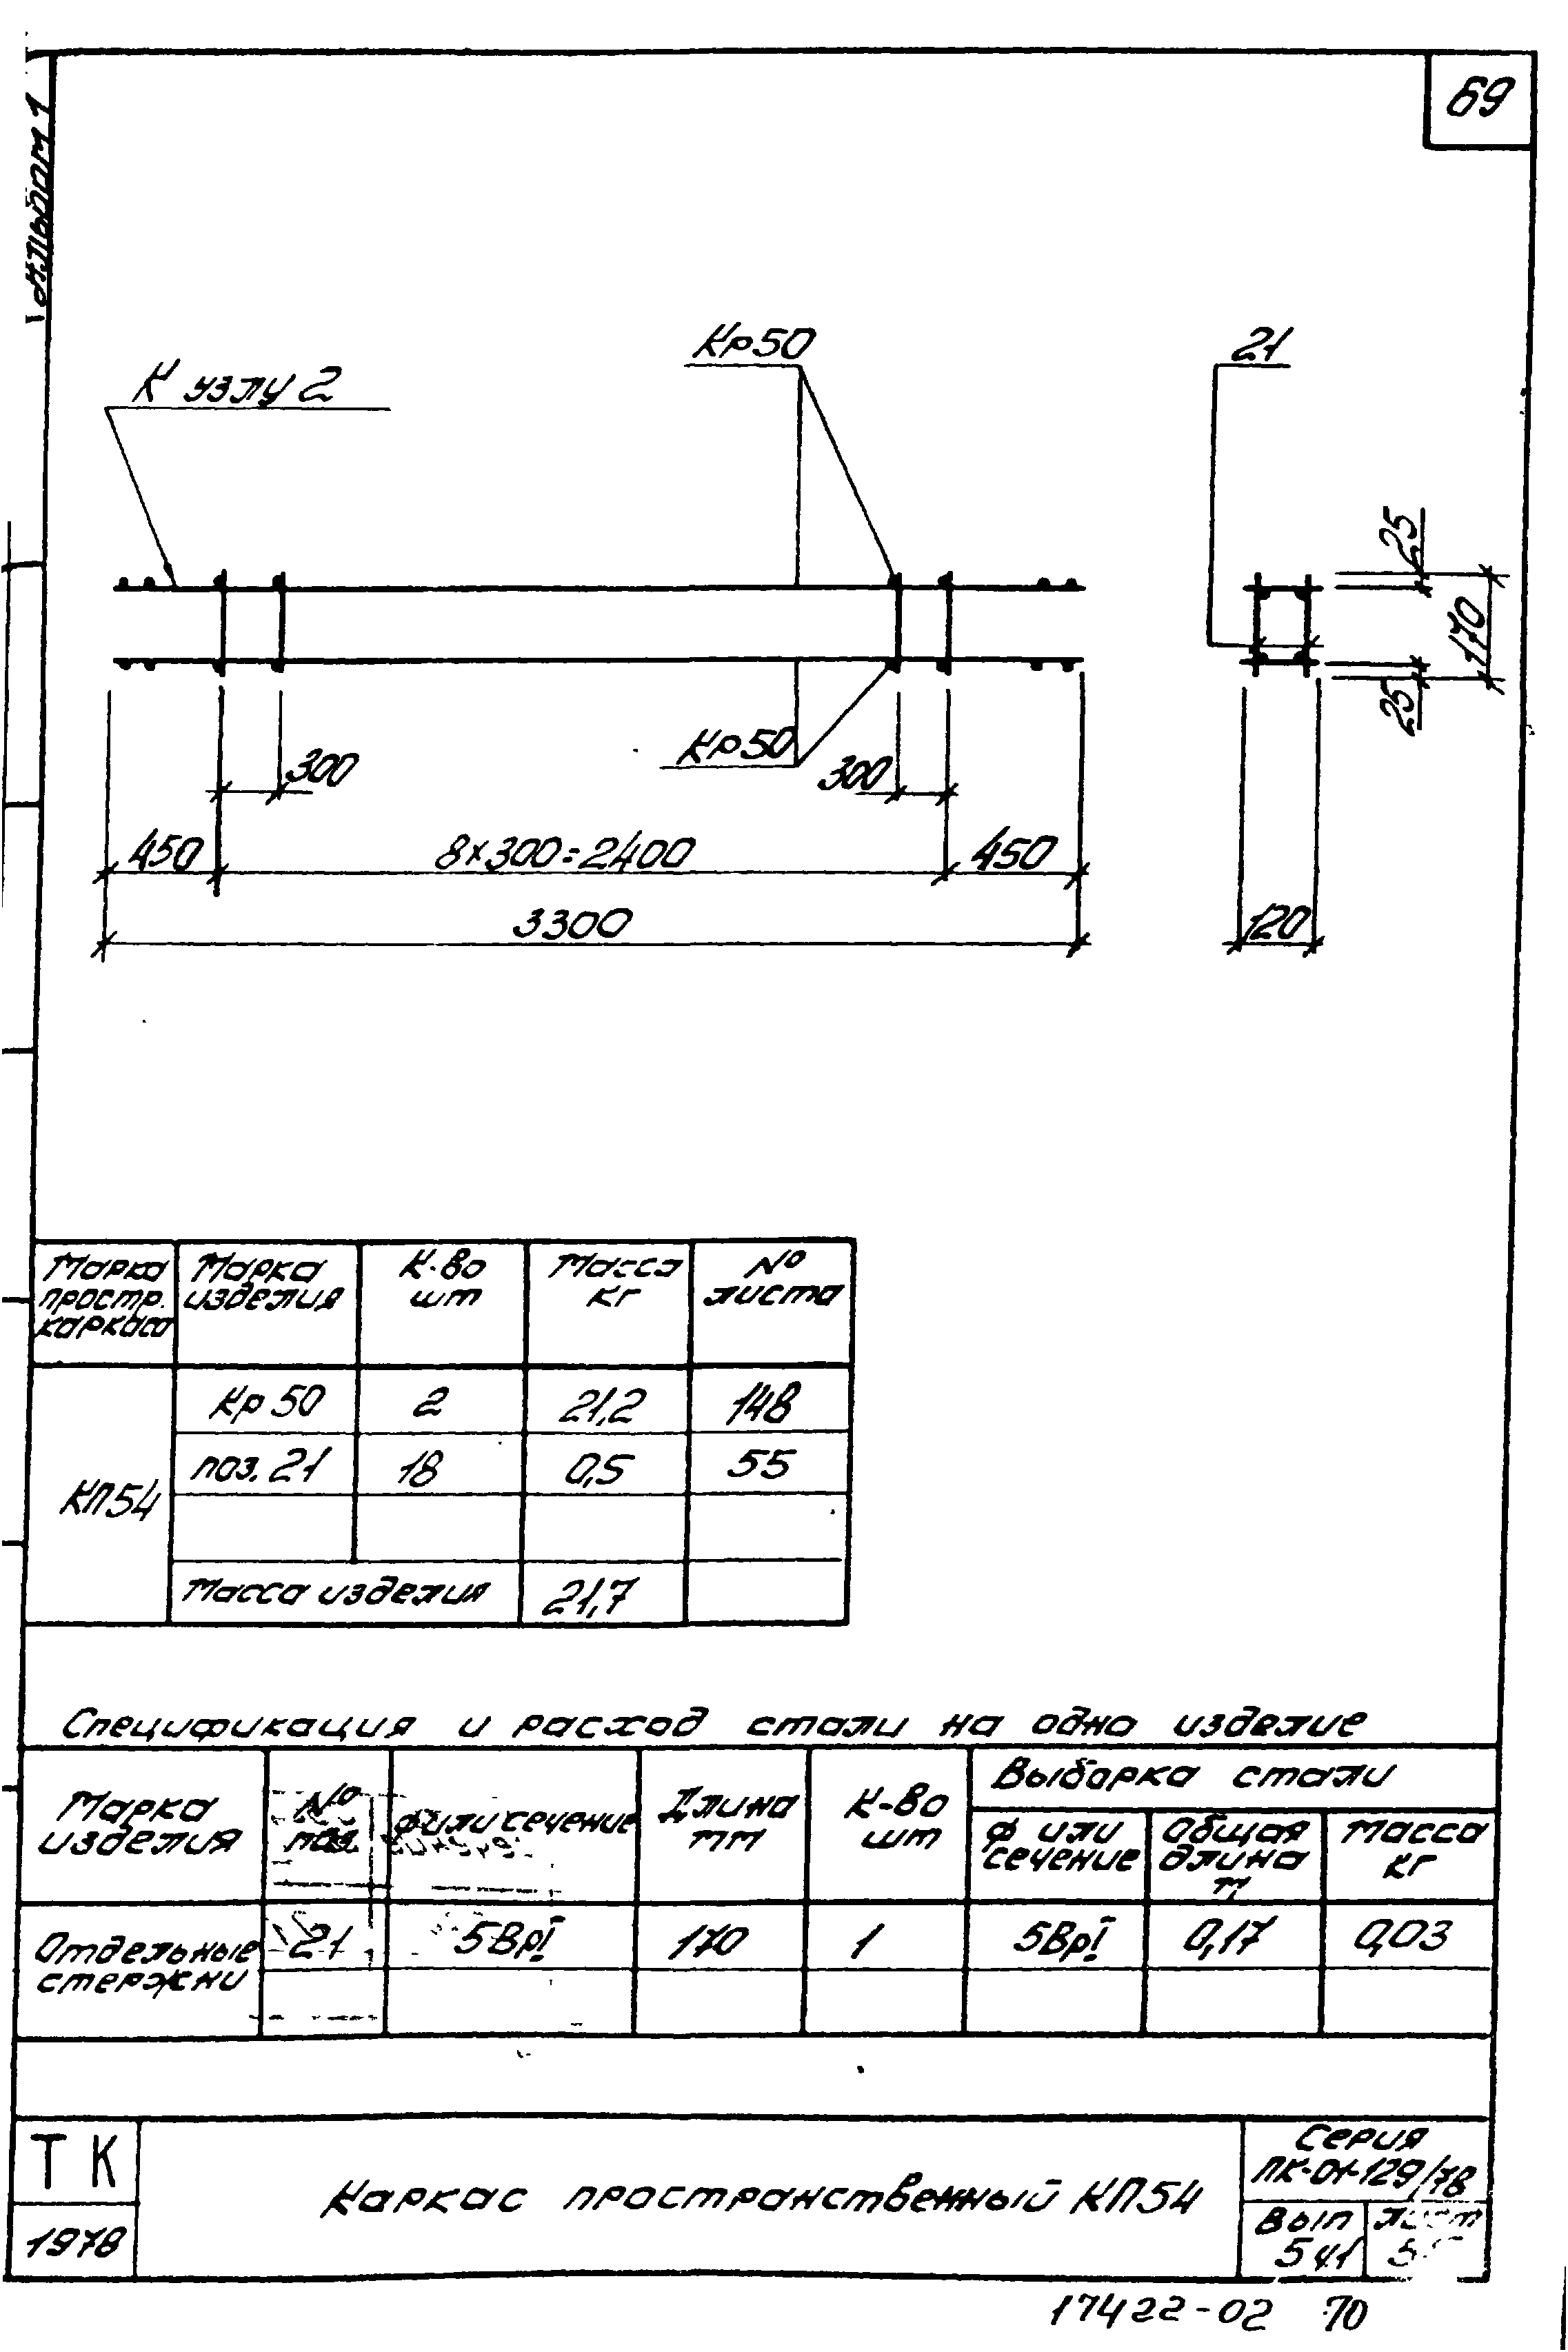 69
Альбом 1
К узлу 2
Кр50
21
25
170
25
Кр50
300
300
450
8×300=2400
450
3300
120
Марка простр. каркаса
Марка изделия
К-во шт
Масса кг
№ листа
КП54
Кр 50 2 21,2 148
поз. 21 18 0,5 55
Масса изделия 21,7
Спецификация и расход стали на одно изделие
Марка изделия
№ поз.
ф или сечение
Длина мм
К-во шт
Выборка стали
ф или сечение
Общая длина м
Масса кг
Отдельные стержни
21 5ВрI 170 1 5ВрI 0,17 0,03
ТК
1978
Каркас пространственный КП54
Серия
ПК-01-129/78
Вып
лист
17422-02 70